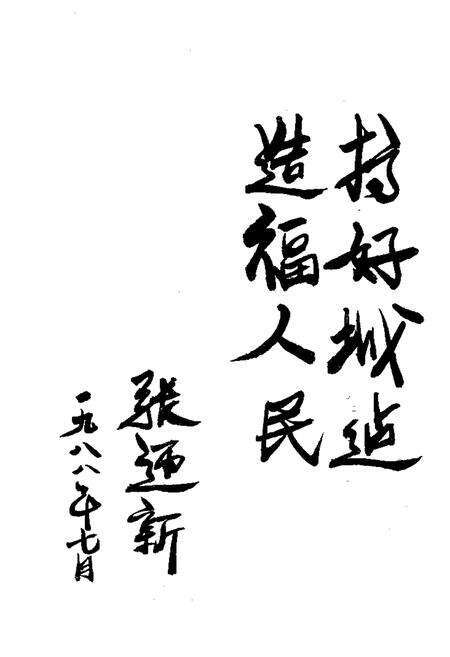 搞好城建
造福人民
张迺新
一九八八年七月